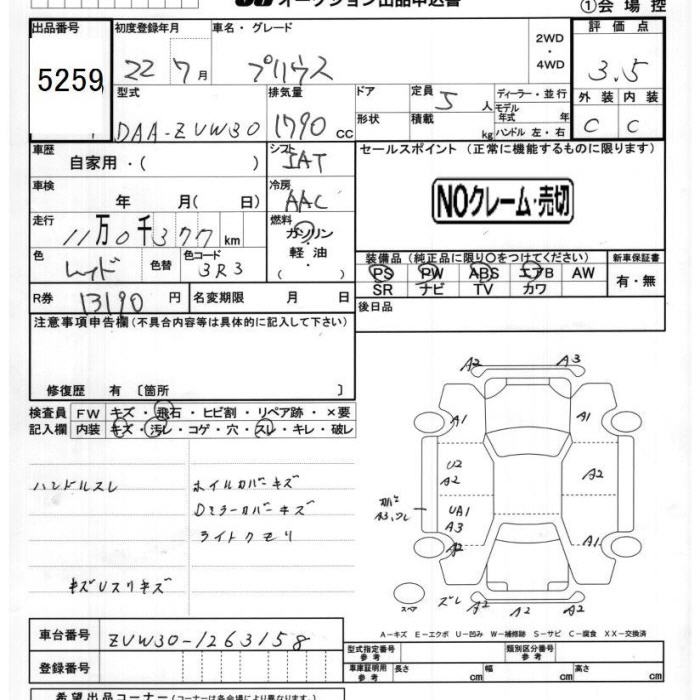 オークション出品申込書
①会場控
出品番号 初度登録年月 車名・グレード 2WD ・ 4WD 評価点
5259 22 7月 プリウス 3.5
型式 排気量 ドア 定員 5人 ディーラー・並行 外装 内装
DAA-ZVW30 1790 cc 形状 積載 kg モデル年式 年 ハンドル 左・右 C C
車歴 自家用・( ) シフト IAT セールスポイント (正常に機能するものに限ります)
車検 年 月( 日) 冷房 AAC
NOクレーム・売切
走行 11万0千377km 燃料 ガソリン・軽油・
色 レッド 色替 色コード 3R3
装備品 (純正品に限り○をつけてください) 新車保証書
PS PW ABS エアB AW 有・無
SR ナビ TV カワ
R券 13190 円 名変期限 月 日 後日品
注意事項申告欄 (不具合内容等は具体的に記入して下さい)
修復歴 有 〔箇所 〕
検査員 FW キズ・飛石・ヒビ割・リペア跡・×要
記入欄 内装 キズ・汚レ・コゲ・穴・スレ・キレ・破レ
ハンドルスレ ホイルカバーキズ
Dミラーカバーキズ
ライトクモリ
キズUスリキズ
A2 A3
A1 A1
U2
A2 A2
UA1
A3
A3,ワレ
A2 A1
スペア ズレ A2 A2 A2
A-キズ E-エクボ U-凹み W-補修跡 S-サビ C-腐食 XX-交換済
車台番号 ZVW30-1263158
型式指定番号 参考 類別区分番号 参考
登録番号 車庫証明用 参考 長さ cm 幅 cm 高さ cm
希望出品コーナー (コーナーは各会場により異なります。)